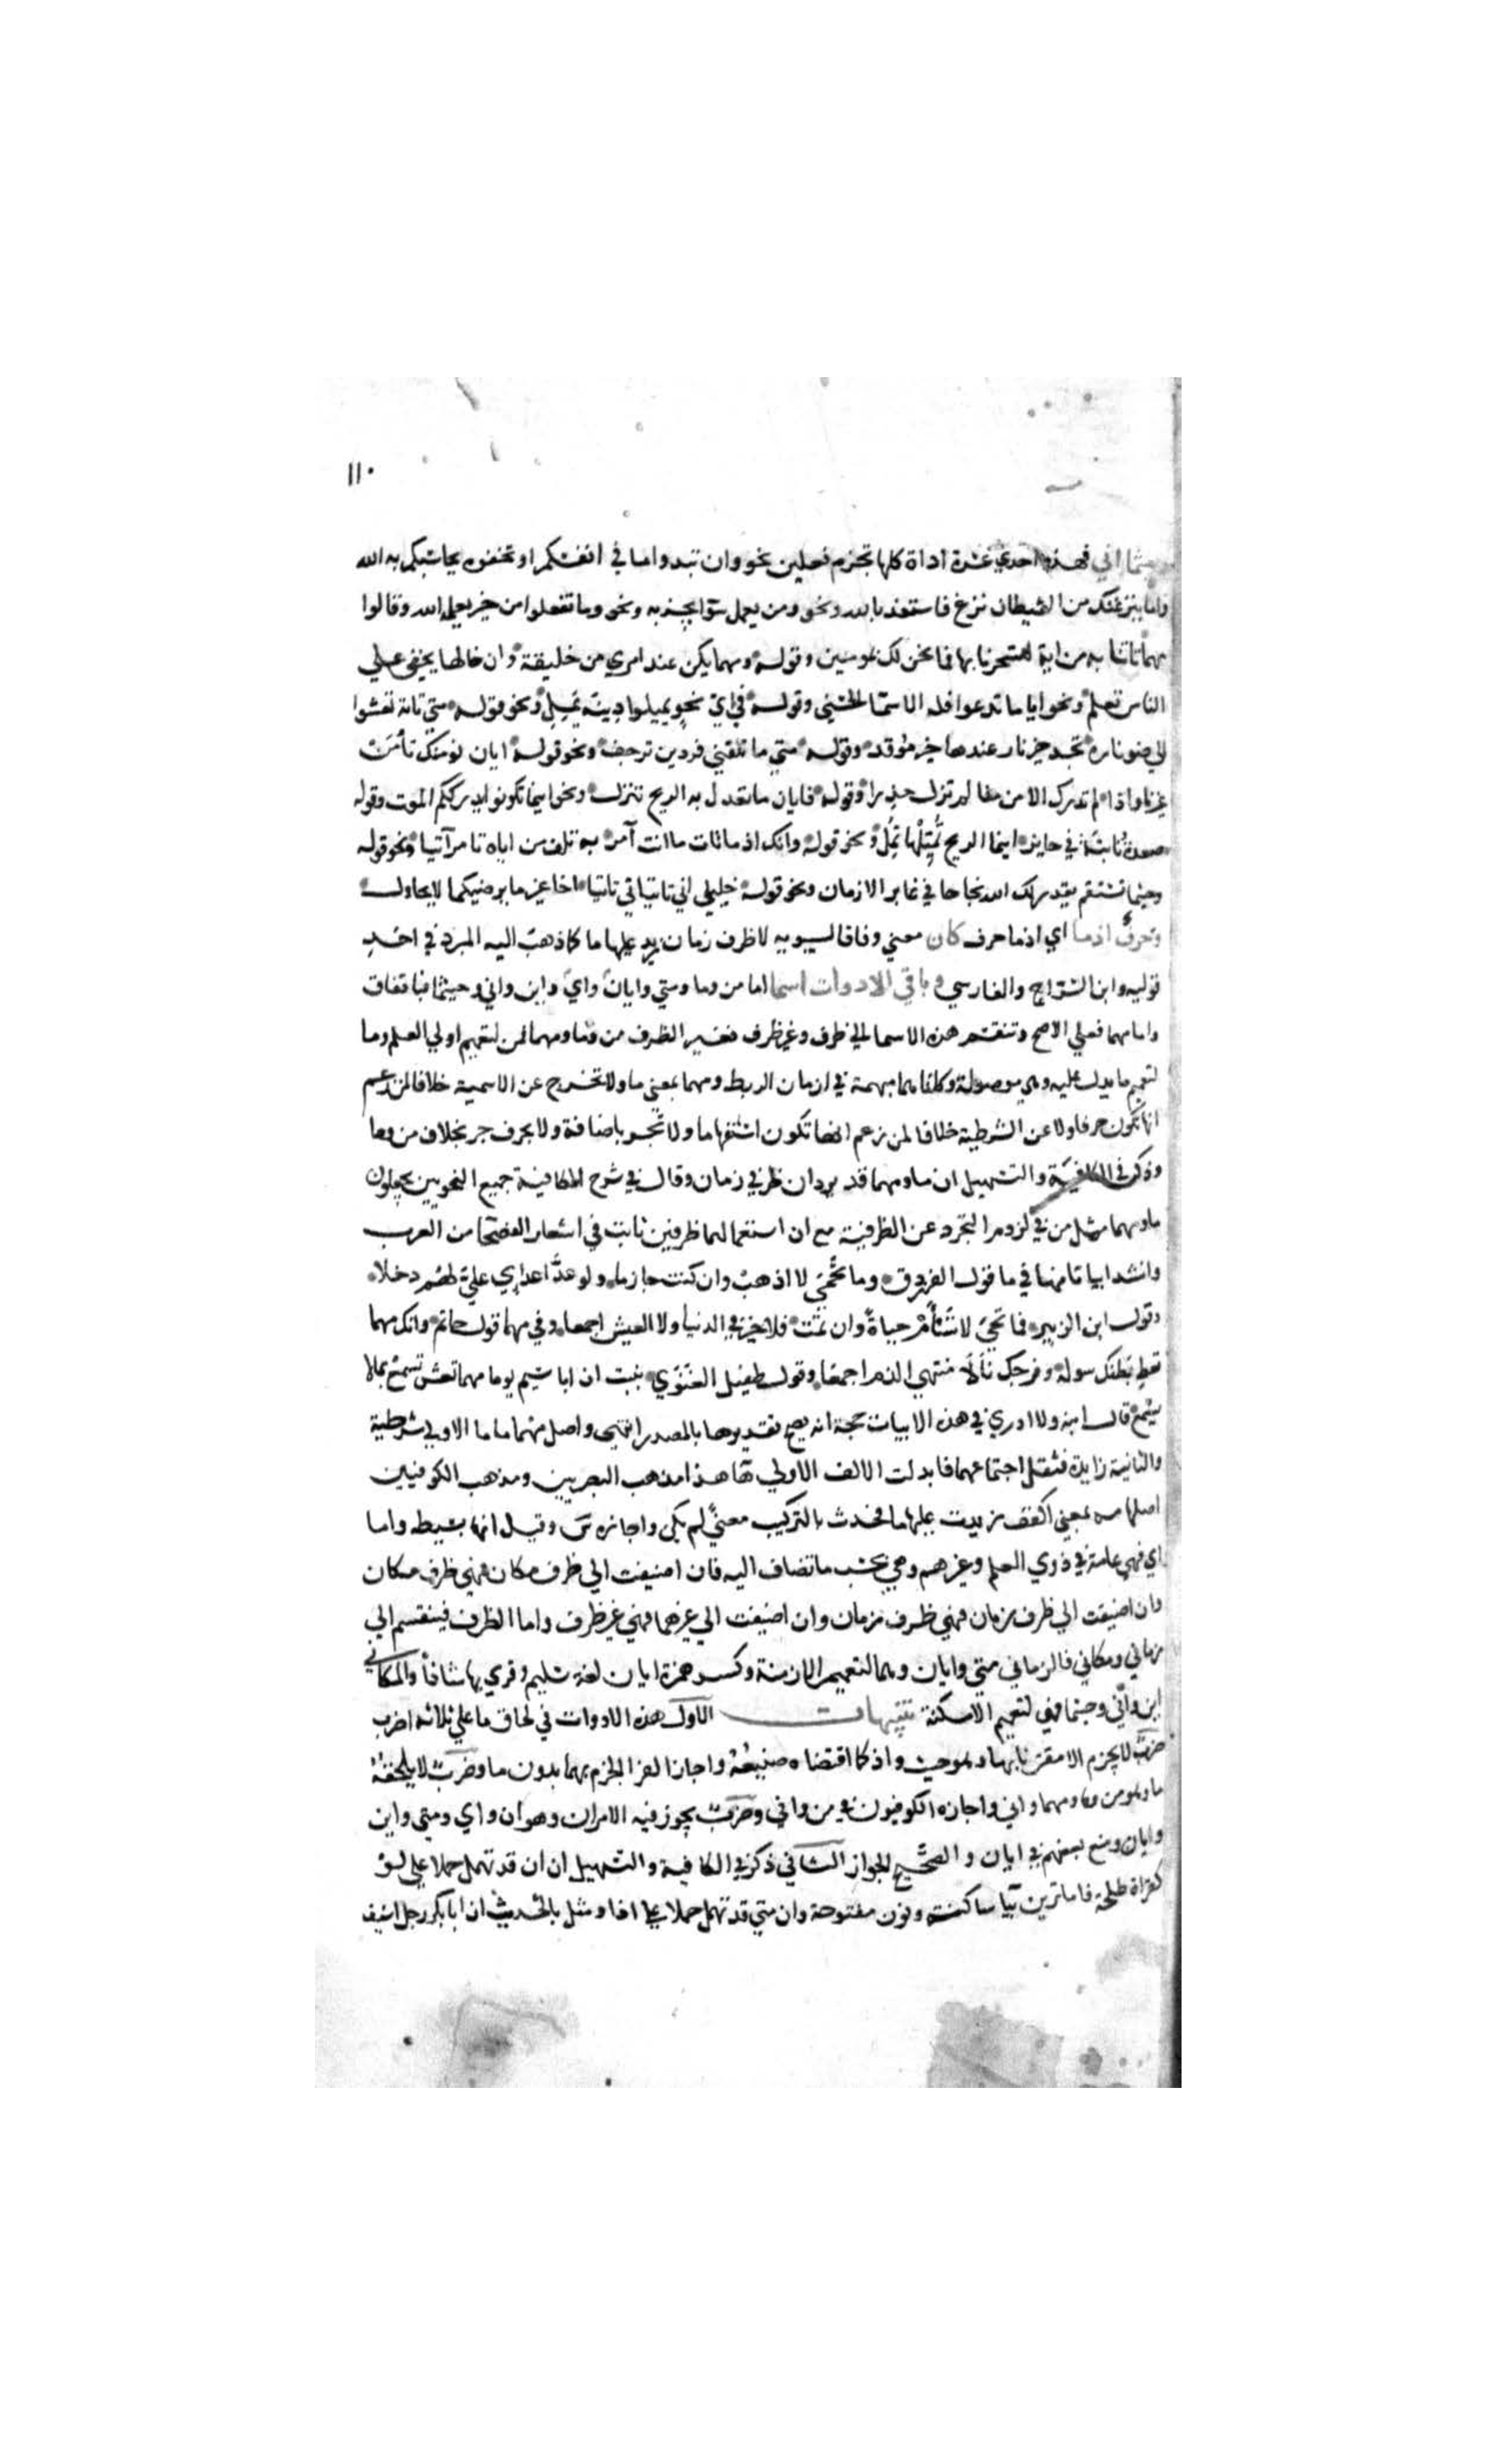 ١١٠
حيثما اني فهذه احدي عشرة اداة كلها تجزم فعلين نحو وان تبدوا ما في انفسكم او تخفوه يحاسبكم به الله
واما ينزغنك من الشيطان نزغ فاستعذ بالله ونحو ومن يعمل سوا يجز به ونحو وما تفعلوا من خير يعلمه الله وقالوا
مهما تاتنا به من اية لتسحرنا بها فما نحن لك بمومنين وقوله ومهما يكن عند امري من خليقة وان خالها يخفى علي
الناس تعلم ونحو ايا ما تدعوا فله الاسما الحسني وقوله في اي نحو يميلوا دينه يمل ونحو قوله متي تاته تعشوا
الي ضو ناره تجد خير نار عندها خير موقد وقوله متي ما تلقني فردين ترجف ونحو قوله ايان نومنك تأمن
غيرنا واذا لم تدرك الامن منا لم تزل حذرا وقوله فايان ما تعدل به الريح تنزل ونحو اينما تكونوا يدرككم الموت وقوله
صعدة نابتة في حاير اينما الريح تميلها تمل ونحو قوله وانك اذ ما تات ما انت آمر به تلف من اياه تامر آتيا ونحو قوله
وحيثما تستقم يقدر لك الله نجاحا في غابر الازمان ونحو قوله خليلي اني تاتياني تاتيا اخا غير ما يرضيكما لا يحاول
وحرف اذما اي اذما حرف كان معني وفاقا لسيبويه لا ظرف زمان زيد عليها ما كما ذهب اليه المبرد في احد
قوليه وابن السراج والفارسي وباقي الادوات اسما اما من وما ومتي وايان واي واين واني وحيثما فباتفاق
واما مهما فعلي الاصح وتنقسم هذه الاسما الي ظرف وغير ظرف فغير الظرف من وما ومهما فمن لتعميم اولي العلم وما
لتعميم ما يدل عليه وهي موصولة وكلتاهما مبهمة في ازمان الربط ومهما بمعني ما ولا تخرج عن الاسمية خلافا لمن زعم
انها تكون حرفا ولا عن الشرطية خلافا لمن زعم انها تكون استفهاما ولا تجر باضافة ولا بحرف جر بخلاف من وما
وذكر في الكافية والتسهيل ان ما ومهما قد يردان ظرفي زمان وقال في شرح الكافية جميع النحويين يجعلون
ما ومهما مثل من في لزوم التجرد عن الظرفية مع ان استعمالهما ظرفين ثابت في اشعار الفصحا من العرب
وانشد ابياتا منها في ما قول الفرزدق وما تحي لا اذهب وان كنت حازما ولو عد اعداي علي لهم دخلا
وقول ابن الزبير فما تحي لا تسأم حياة وان تمت فلا خير في الدنيا ولا العيش اجمعا وفي مهما قول حاتم وانك مهما
تعط بطنك سوله وفرجك نالا منتهي الذم اجمعا وقول طفيل الغنوي نبيت ان ابا شتيم يوما مهما تعش تسمع بما لا
يسمع قال ابنه ولا اري في هذه الابيات حجة انه يصح تقديرها بالمصدر انتهى واصل مهما ما ما الاولي شرطية
والثانية زايدة فثقل اجتماعهما فابدلت الالف الاولي ها هذا مذهب البصريين ومذهب الكوفيين
اصلها مه بمعني اكفف زيدت عليها ما فحدث بالتركيب معني لم يكن واجازه س وقيل انها بسيطه واما
اي فهي عامة في ذوي العلم وغيرهم وهي بحسب ما تضاف اليه فان اضيفت الي ظرف مكان فهي ظرف مكان
وان اضيفت الي ظرف زمان فهي ظرف زمان وان اضيفت الي غيرهما فهي غير ظرف واما الظرف فينقسم الي
زماني ومكاني فالزماني متي وايان وهما لتعميم الازمنة وكسر همزة ايان لغة سليم وقري بها شاذا والمكاني
اين واني وحيثما فهي لتعميم الامكنة تنبيهات الاول هذه الادوات في لحاق ما علي ثلاثه اضرب
ضرب لا يجزم الا مقترنا بها وهو حيث واذ كما اقتضاه صنيعه واجاز الفرا الجزم بهما بدون ما وضرب لا يلحقه
ما وهو من وما ومهما واني واجازه الكوفيون في من واني وضرب يجوز فيه الامران وهو ان واي ومتي واين
وايان ومنع بعضهم في ايان والصحيح الجواز الثاني ذكر في الكافية والتسهيل ان ان قد تهمل حملا علي لو
كقراة طلحة فاما ترين بيا ساكنه ونون مفتوحة وان متي قد تهمل حملا علي اذا ومثل بالحديث ان ابا بكر رجل اسيف